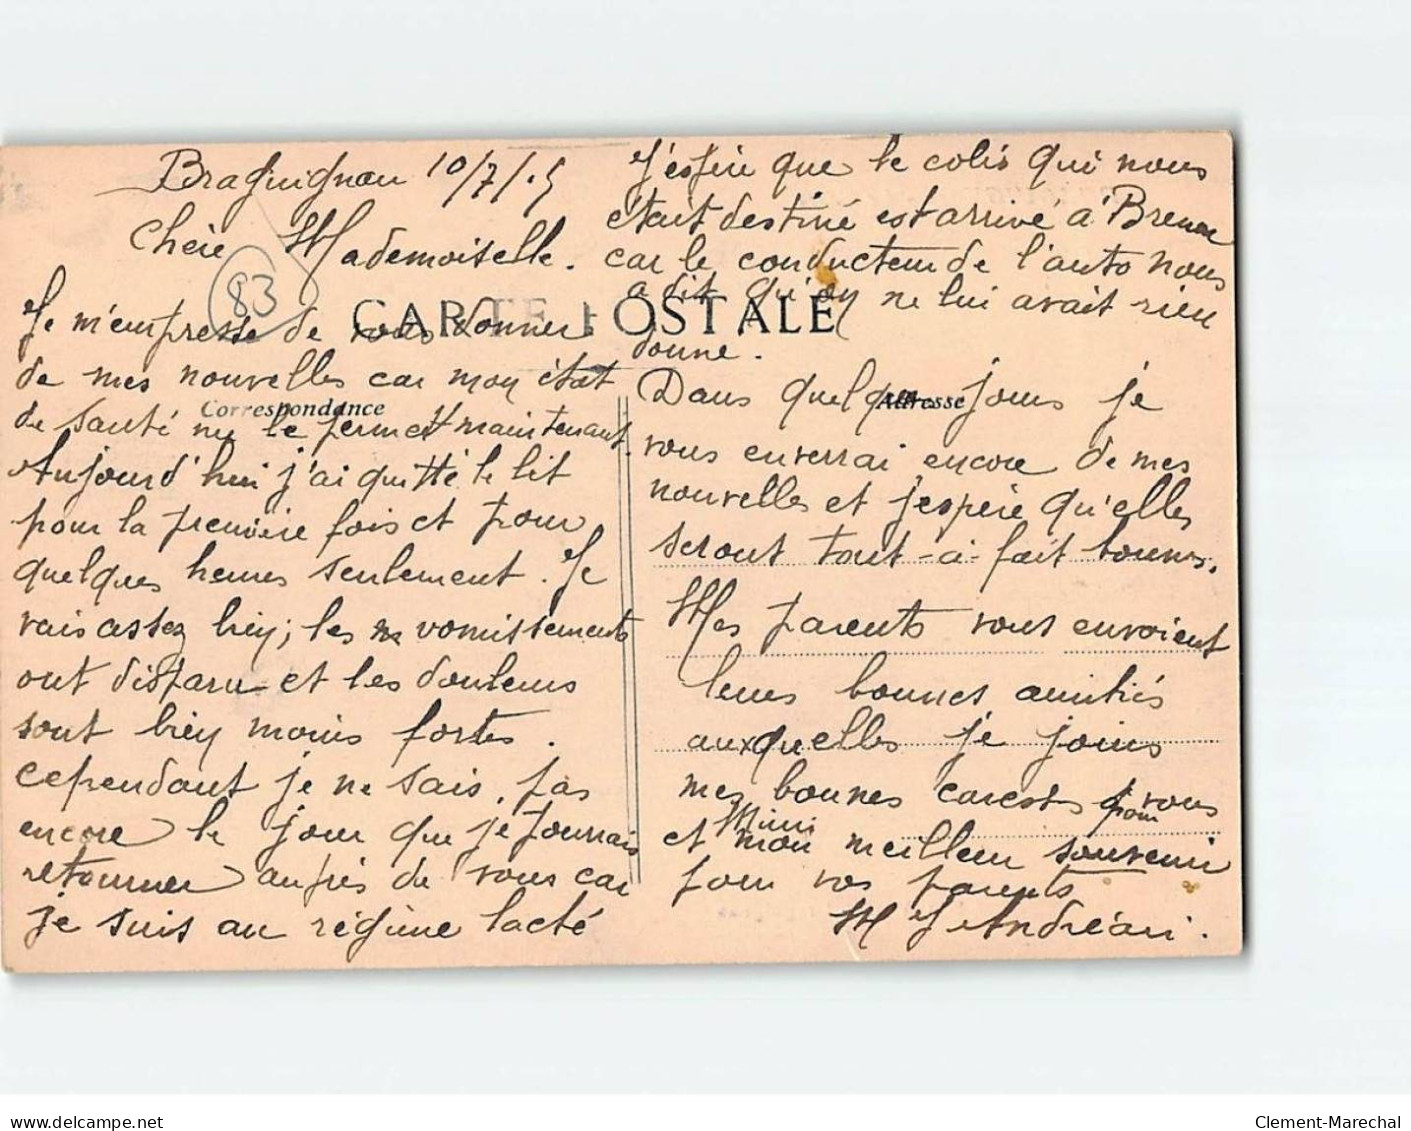 Braguignan 10/7/15
Chère Mademoiselle.
83
CARTE POSTALE
Je m'empresse de vous donner
de mes nouvelles car mon état
Correspondance
de santé me le permet maintenant.
Aujourd'hui j'ai quitté le lit
pour la première fois et pour
quelques heures seulement. Je
vais assez bien; les vomissements
ont disparu et les douleurs
sont bien moins fortes.
Cependant je ne sais pas
encore le jour que je pourrais
retourner auprès de vous car
je suis au régime lacté
J'espère que le colis qui nous
était destiné est arrivé à
car le conducteur de l'auto nous
a dit qu'on ne lui avait rien
donné.
Adresse
Dans quelques jours je
vous enverrai encore de mes
nouvelles et j'espère qu'elles
seront tout-à-fait bonnes.
Mes parents vous envoient
leurs bonnes amitiés
auxquelles je joins
mes bonnes caresses pour vous
et Mimi mon meilleur souvenir
pour vos parents
M J Andréani.
Clement-Marechal
delcampe.net